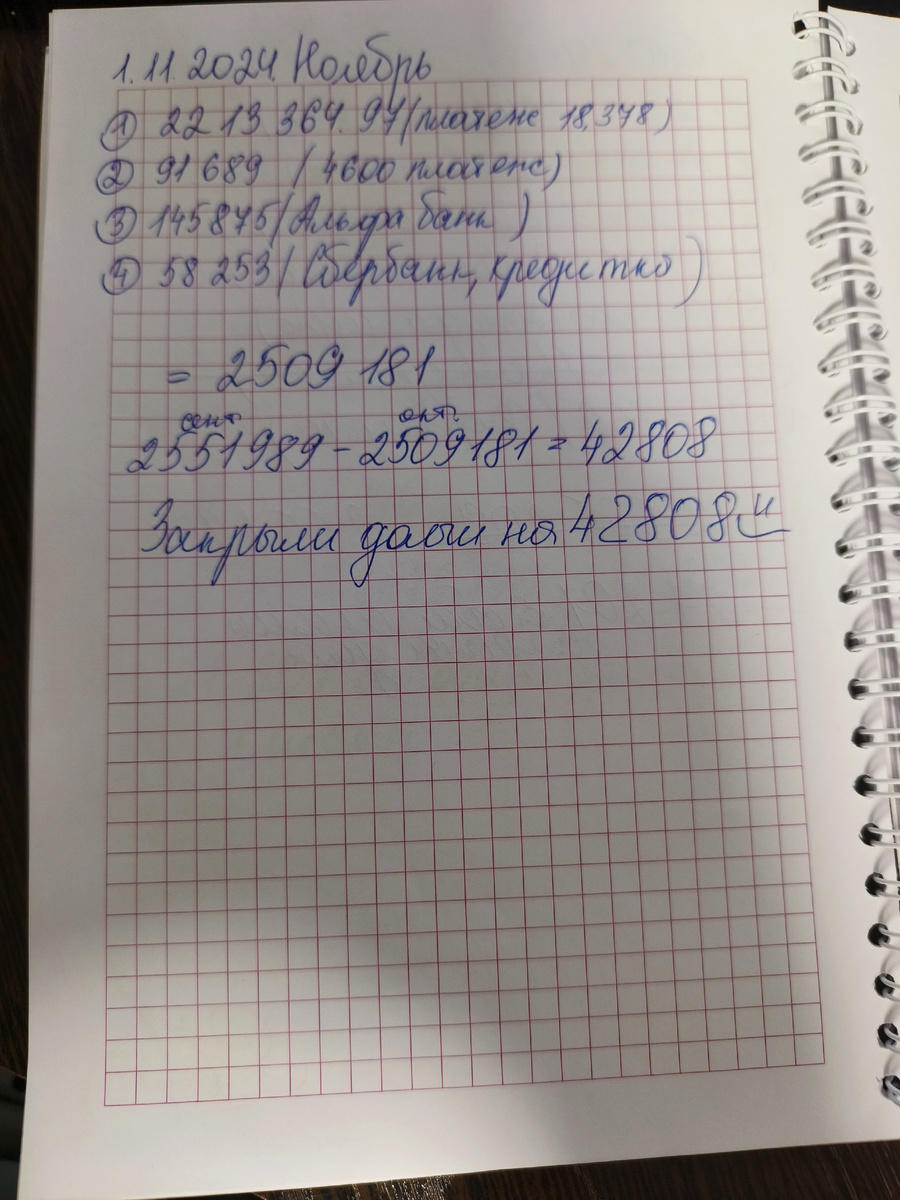 1.11.2024. Ноябрь
① 2213 364.97 (платеж 18,378)
② 91 689 (4600 платеж)
③ 145875 (Альфа банк)
④ 58 253 (Сбербанк, кредитка)
= 2509 181
сент. окт.
2551989 - 2509181 = 42808
Закрыли долги на 42808